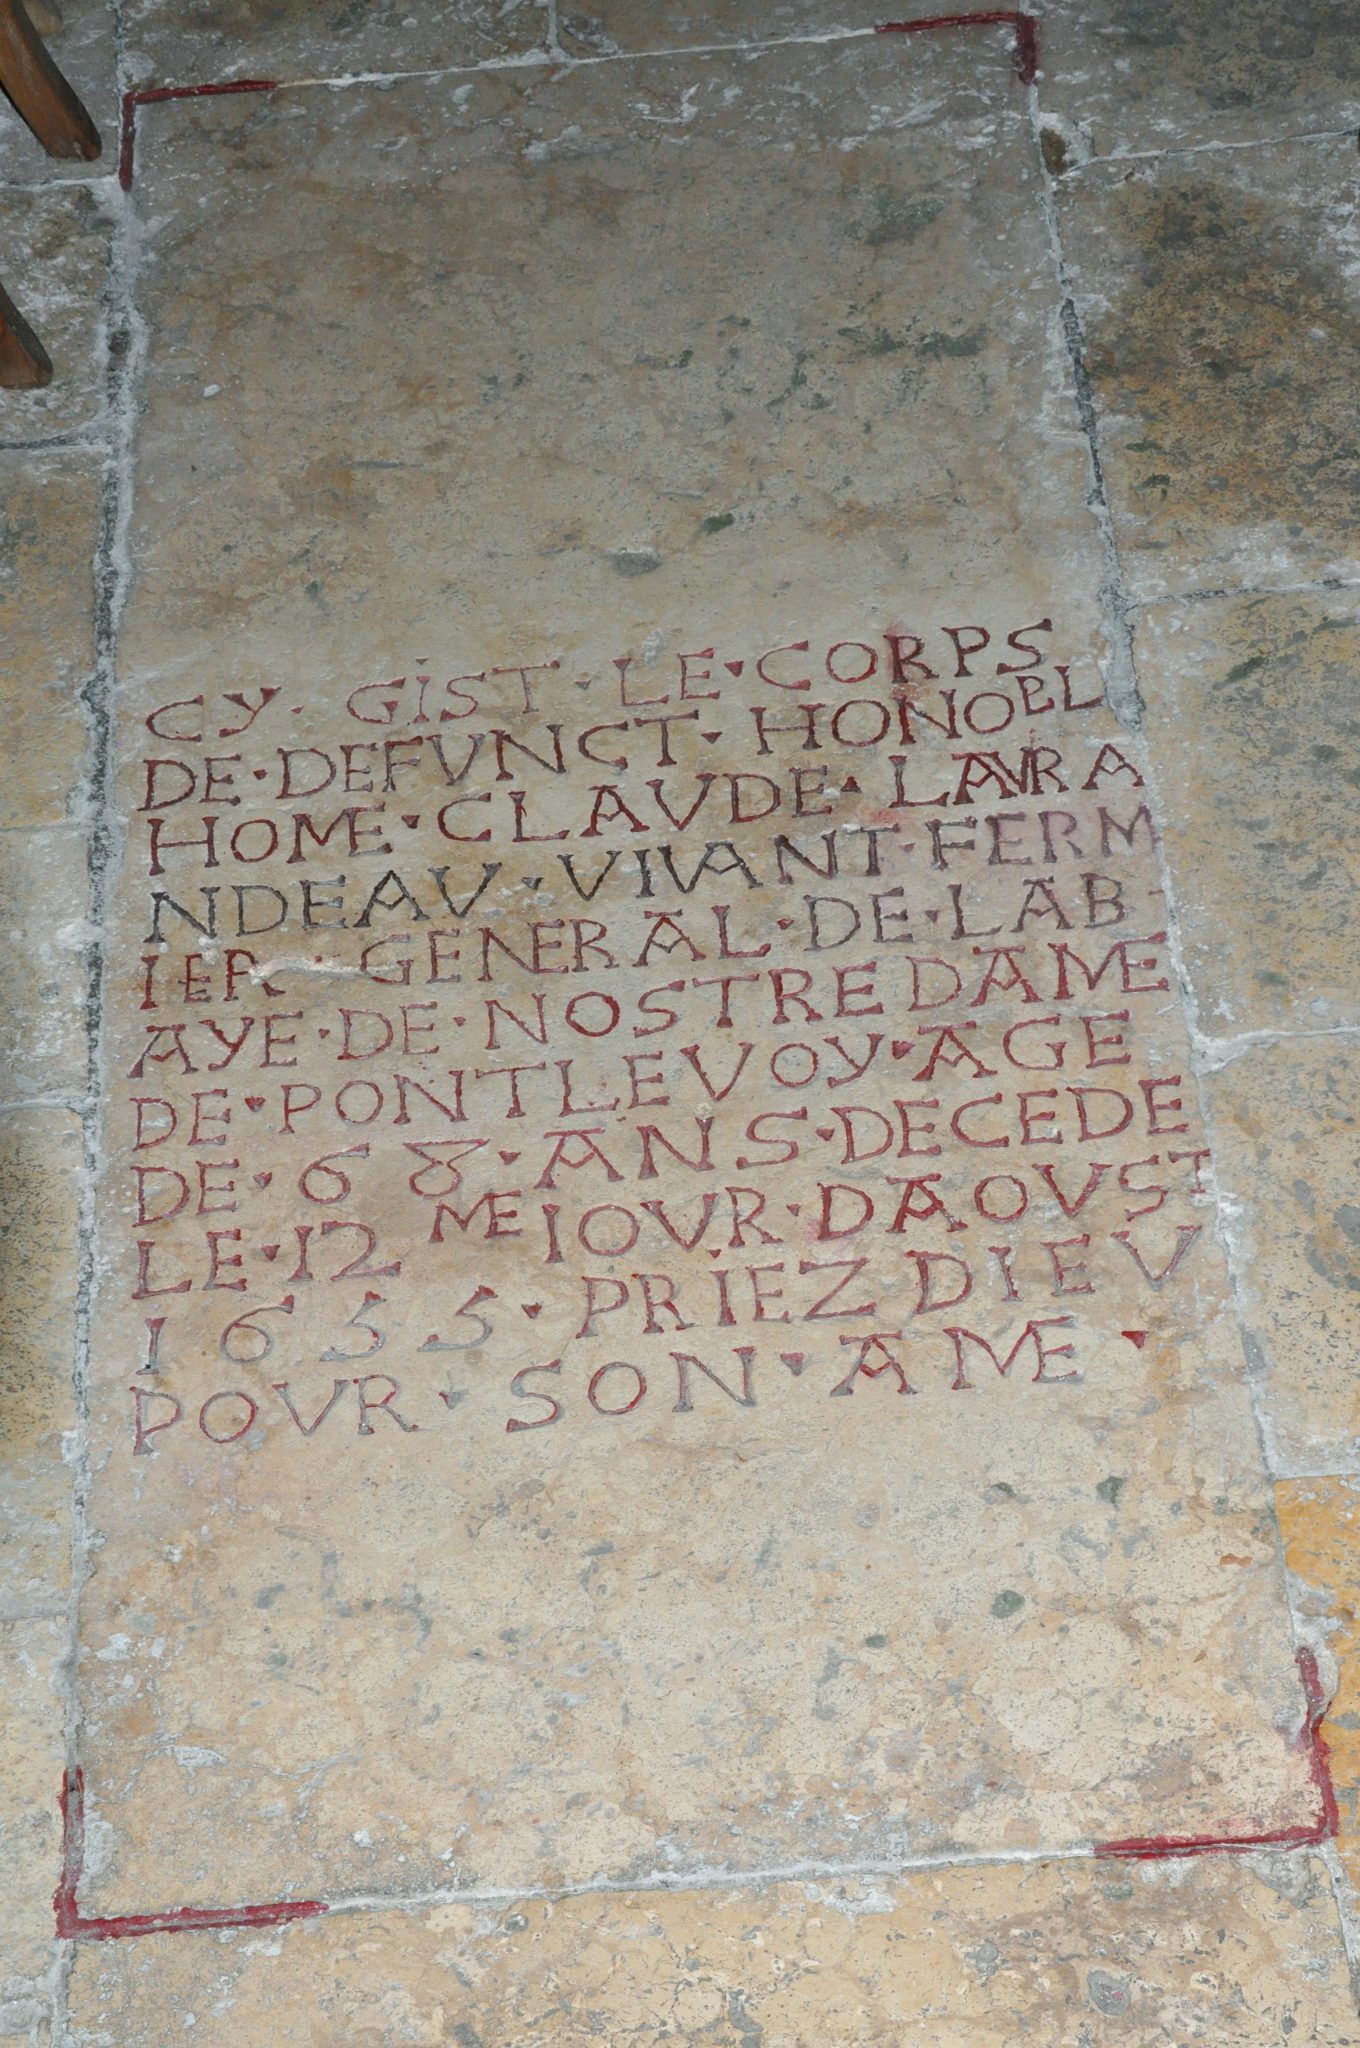 CY · GIST · LE · CORPS
DE · DEFVNCT · HONOBL
HOME · CLAVDE · LAVRA
NDEAV · VIVANT · FERM
IER · GENERAL · DE · LAB
AYE · DE · NOSTRE DAME
DE · PONTLEVOY · AGE
DE · 68 · ANS · DECEDE
LE · 12 ME IOVR · DAOVST
1655 · PRIEZ DIEV
POVR · SON · AME ·